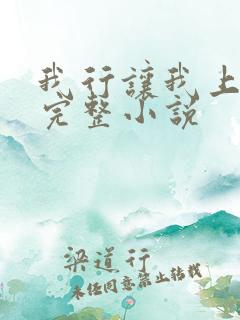 我行讓我上
完整小說
梁道行
未经同意禁止转载